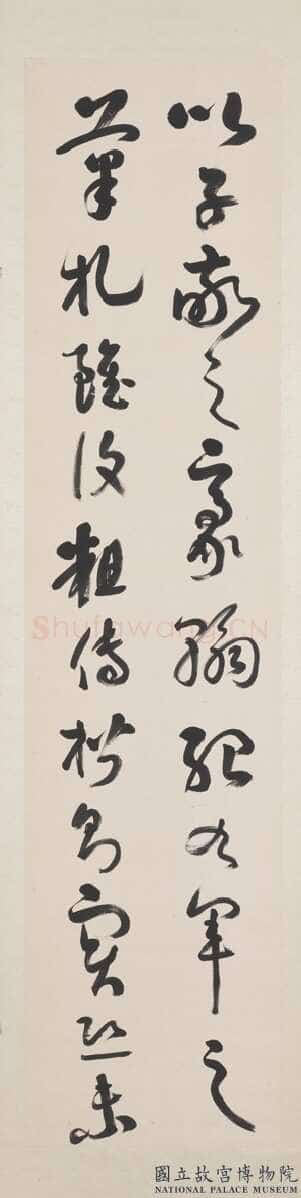 以子敬之豪翰紹右軍之
筆札雖復粗傳楷則實恐未
Shufawang.CN
國立故宮博物院
NATIONAL PALACE MUSEUM